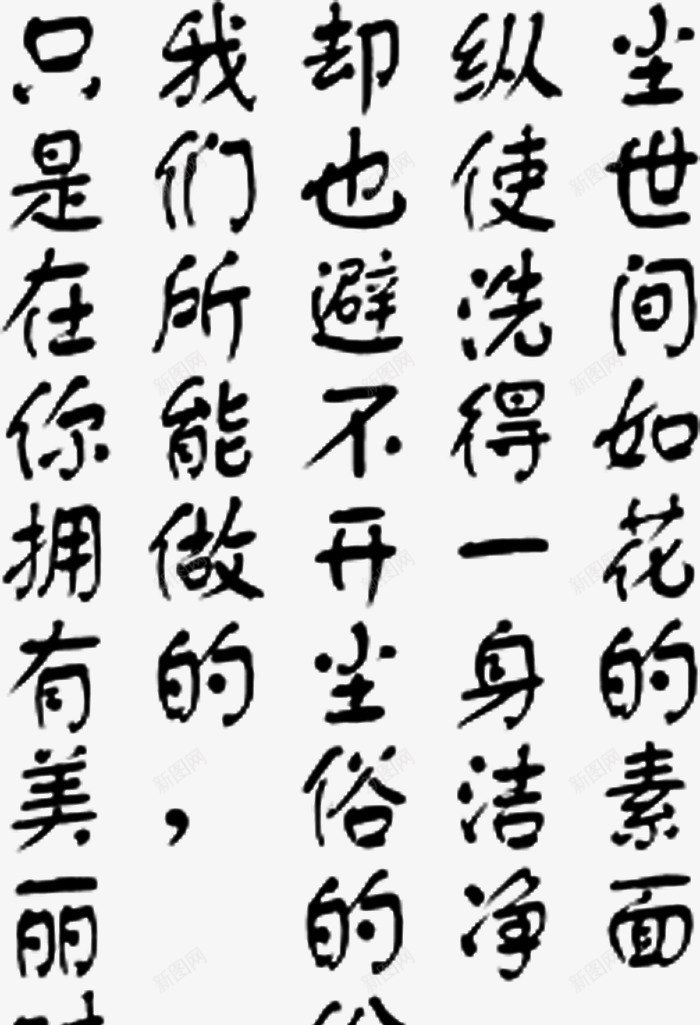 尘世间如花的素面
纵使洗得一身洁净
却也避不开尘俗的
我们所能做的，
只是在你拥有美丽
新图网